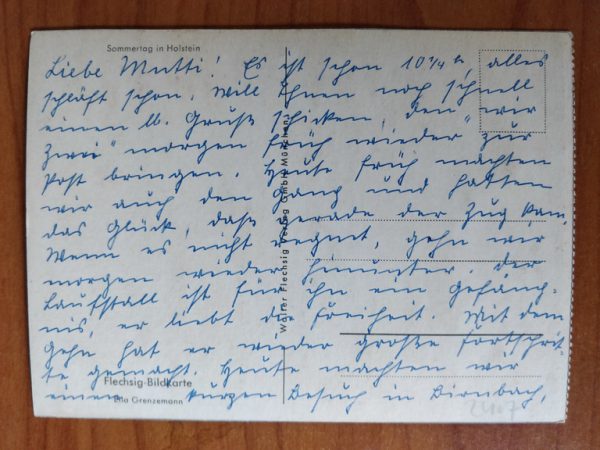 Sommertag in Holstein
Liebe Mutti! Es ist schon 10 1/4 h, alles
schläft schon, will Ihnen noch schnell
einen lb. Gruß schicken, den "wir
zwei" morgen früh wieder zur
Post bringen. Heute früh machten
wir auch den Gang und hatten
das Glück, daß gerade der Zug kam.
Wenn es nicht regnet, gehn wir
morgen wieder hinunter. Der
Laufstall ist für ihn ein Gefäng-
nis, er liebt die Freiheit. Mit dem
Gehn hat er wieder große Fortschrit-
te gemacht. Heute machten wir
einen kurzen Besuch in Birnbach,
Flechsig-Bildkarte
Grenzemann
Walter Flechsig Verlag GmbH München